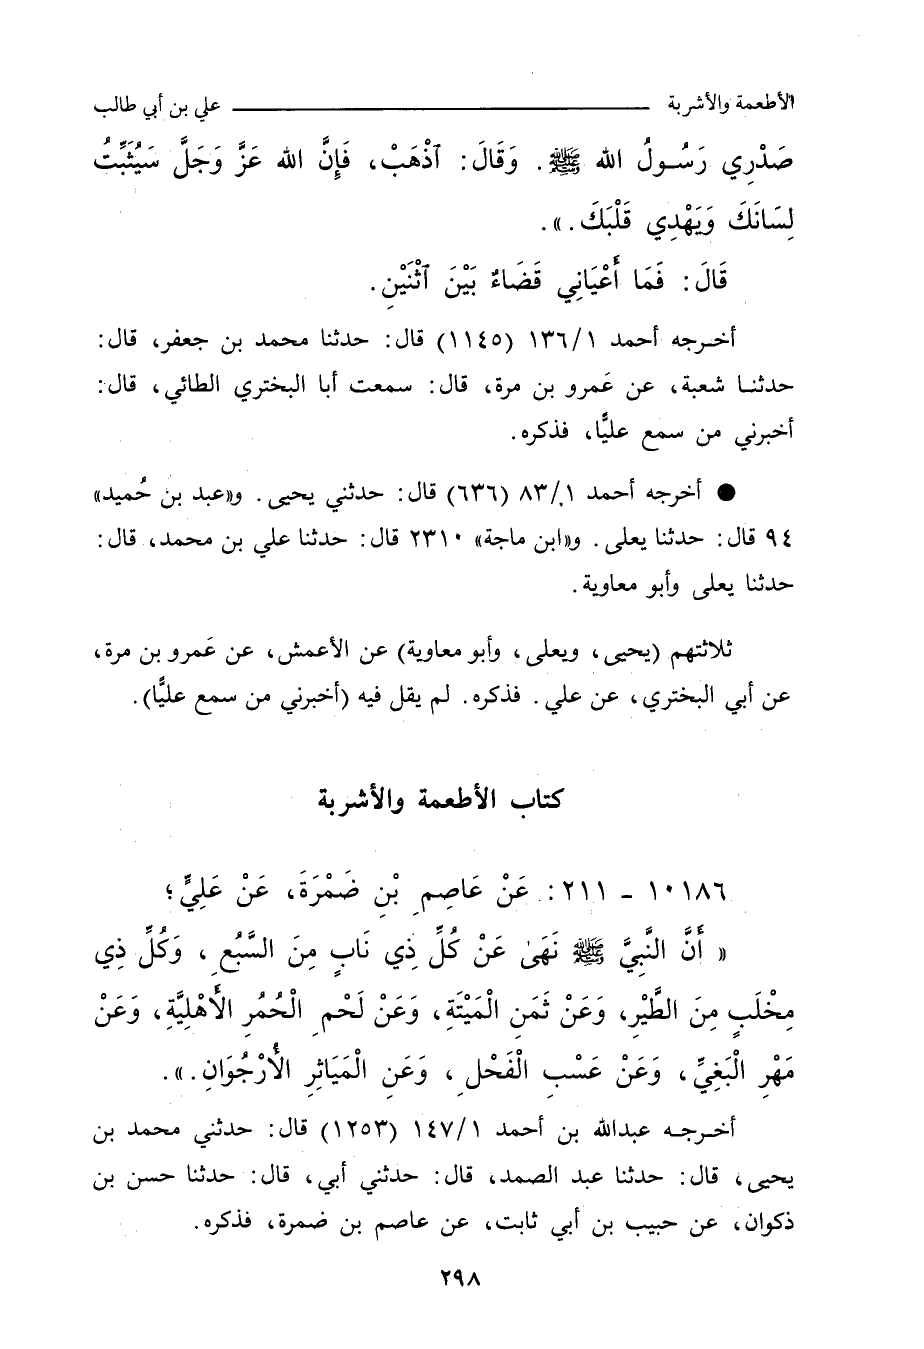 الأطعمة والأشربة ــــــــــــــــــــ علي بن أبي طالب
صَدْرِي رَسُولُ الله ﷺ. وَقَالَ: ٱذْهَبْ، فَإِنَّ الله عَزَّ وَجَلَّ سَيُثَبِّتُ
لِسَانَكَ وَيَهْدِي قَلْبَكَ.».
قَالَ: فَمَا أَعْيَانِي قَضَاءٌ بَيْنَ ٱثْنَيْنِ.
أخرجه أحمد ١/١٣٦ (١١٤٥) قال: حدثنا محمد بن جعفر، قال:
حدثنا شعبة، عن عَمرو بن مرة، قال: سمعت أبا البختري الطائي، قال:
أخبرني من سمع عليًّا، فذكره.
● أخرجه أحمد ١/٨٣ (٦٣٦) قال: حدثني يحيى. و«عبد بن حُميد»
٩٤ قال: حدثنا يعلى. و«ابن ماجة» ٢٣١٠ قال: حدثنا علي بن محمد، قال:
حدثنا يعلى وأبو معاوية.
ثلاثتهم (يحيى، ويعلى، وأبو معاوية) عن الأعمش، عن عَمرو بن مرة،
عن أبي البختري، عن علي. فذكره. لم يقل فيه (أخبرني من سمع عليًّا).
كتاب الأطعمة والأشربة
١٠١٨٦ - ٢١١: عَنْ عَاصِمِ بْنِ ضَمْرَةَ، عَنْ عَلِيٍّ؛
« أَنَّ النَّبِيَّ ﷺ نَهَىٰ عَنْ كُلِّ ذِي نَابٍ مِنَ السَّبُعِ، وَكُلِّ ذِي
مِخْلَبٍ مِنَ الطَّيْرِ، وَعَنْ ثَمَنِ الْمَيْتَةِ، وَعَنْ لَحْمِ الْحُمُرِ الأَهْلِيَّةِ، وَعَنْ
مَهْرِ الْبَغِيِّ، وَعَنْ عَسْبِ الْفَحْلِ، وَعَنِ الْمَيَاثِرِ الأُرْجُوَانِ.».
أخرجه عبدالله بن أحمد ١/١٤٧ (١٢٥٣) قال: حدثني محمد بن
يحيى، قال: حدثنا عبد الصمد، قال: حدثني أبي، قال: حدثنا حسن بن
ذكوان، عن حبيب بن أبي ثابت، عن عاصم بن ضمرة، فذكره.
٢٩٨